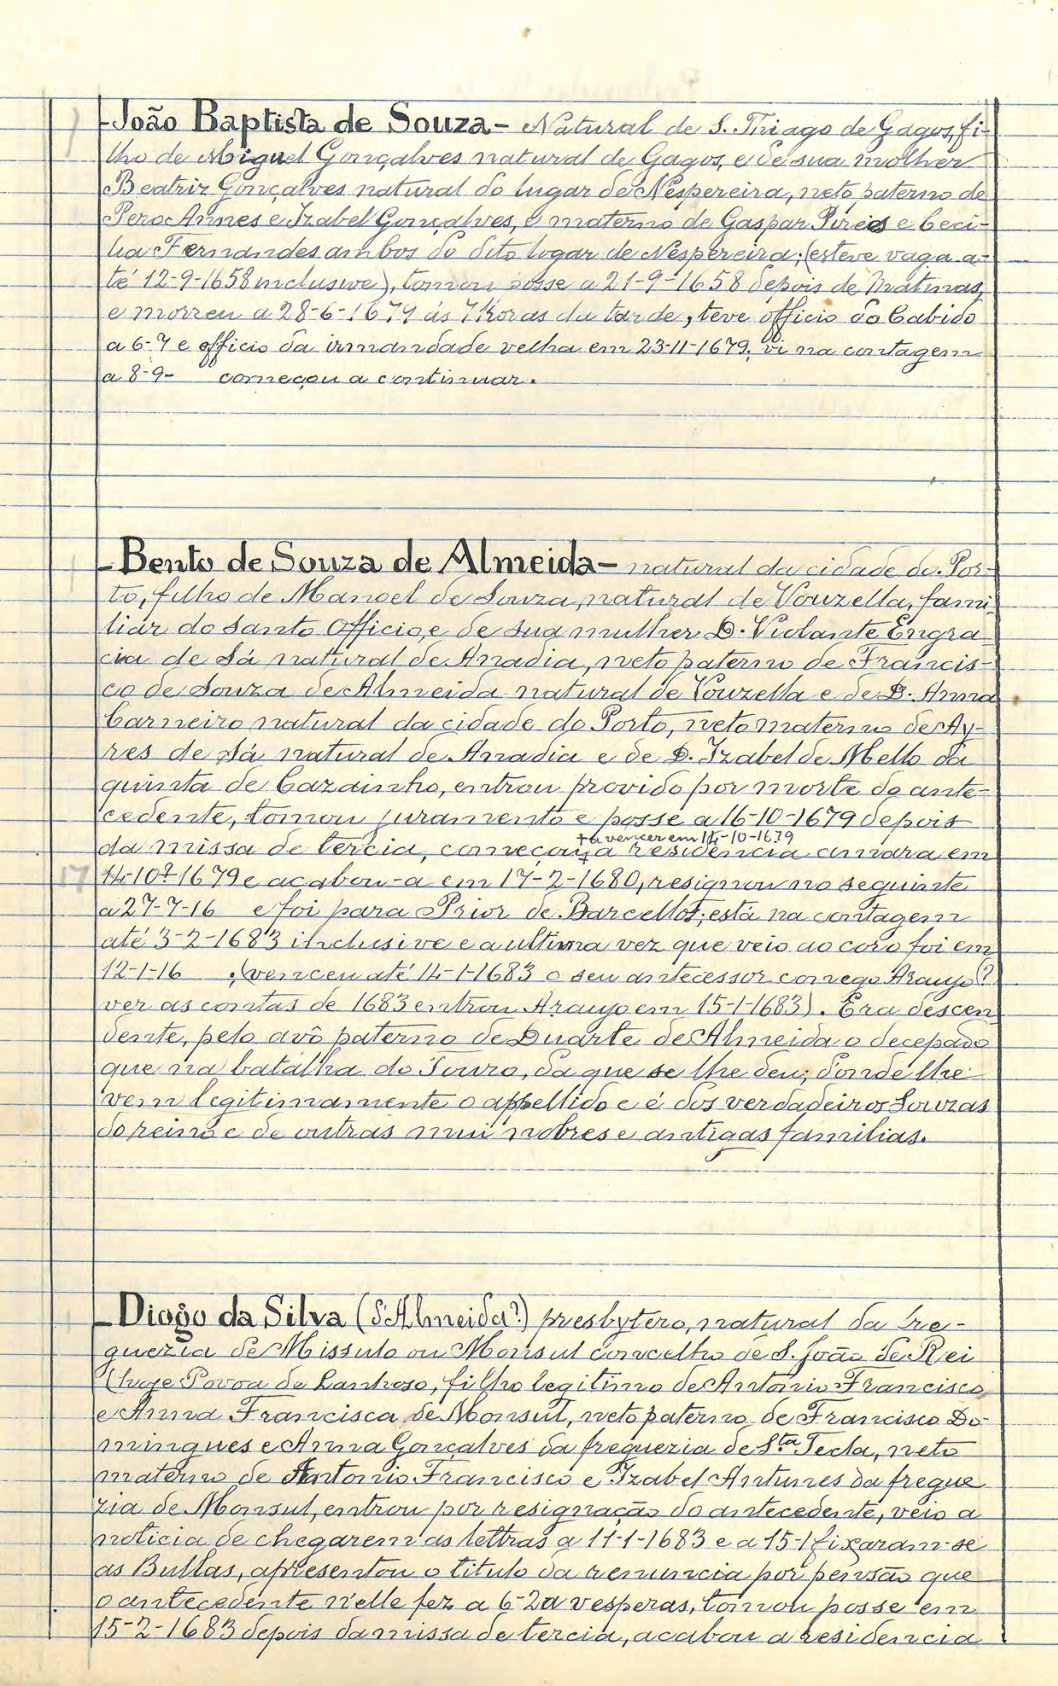 -João Baptista de Souza- Natural de S. Thiago de Gagos, fi-
lho de Miguel Gonçalves natural de Gagos, e de sua molher
Beatriz Gonçalves natural do lugar de Nespereira, neto paterno de
Pero Annes e Izabel Gonçalves, e materno de Gaspar Pires e Ceci-
lia Fernandes ambos do dito lugar de Nespereira; (esteve vaga a-
té 12-9-1658 inclusive), tomou posse a 21-9-1658 depois de Matinas,
e morreu a 28-6-1679 ás 7 horas da tarde, teve officio do Cabido
a 6-7 e officio da irmandade velha em 23-11-1679, vi na contagem
a 8-9- começou a continuar.
-Bento de Souza de Almeida- natural da cidade do Por-
to, filho de Manoel de Souza, natural de Vouzella, fami-
liar do Santo Officio, e de sua mulher D. Violante Engra-
cia de Sá natural de Anadia, neto paterno de Francis-
co de Souza de Almeida natural de Vouzella e de D. Anna
Carneiro natural da cidade do Porto, neto materno de Ay-
res de Sá natural de Anadia e de D. Izabel de Mello da
quinta de Cazainho, entrou provido por morte do ante-
cedente, tomou juramento e posse a 16-10-1679 depois
+ a vencer em 14-10-1679
da missa de tercia, começou + a residencia amara em
14-10?-1679 e acabou-a em 17-2-1680, resignou no seguinte
a 27-7-16 e foi para Prior de Barcellos; está na contagem
até 3-2-1683 inclusive e a ultima vez que veio ao coro foi em
12-1-16 . (venceu até 14-1-1683 o seu antecessor conego Araujo?
ver as contas de 1683 entrou Araujo em 15-1-1683). Era descen
dente, pelo avô paterno de Duarte de Almeida o decepado
que na batalha do Touro, da que se lhe deu; donde lhe
vem legitimamente o appellido e é dos verdadeiros Souzas
do reino e de outras mui nobres e antigas familias.
-Diogo da Silva (d'Almeida?) presbytero, natural da fre-
guezia de Missulo ou Monsul concelho de S. João de Rei
(hoje Povoa de Lanhoso, filho legitimo de Antonio Francisco
e Anna Francisca de Monsul, neto paterno de Francisco Do-
mingues e Anna Gonçalves da freguezia de Sta Tecla, neto
materno de Antonio Francisco e Izabel Antunes da fregue
zia de Monsul, entrou por resignação do antecedente, veio a
noticia de chegarem as lettras a 11-1-1683 e a 15-1 fixaram-se
as Bullas, apresentou o titulo da renuncia por pensão que
o antecedente n'elle fez a 6-2 a vesperas, tomou posse em
15-2-1683 depois da missa de tercia, acabou a residencia